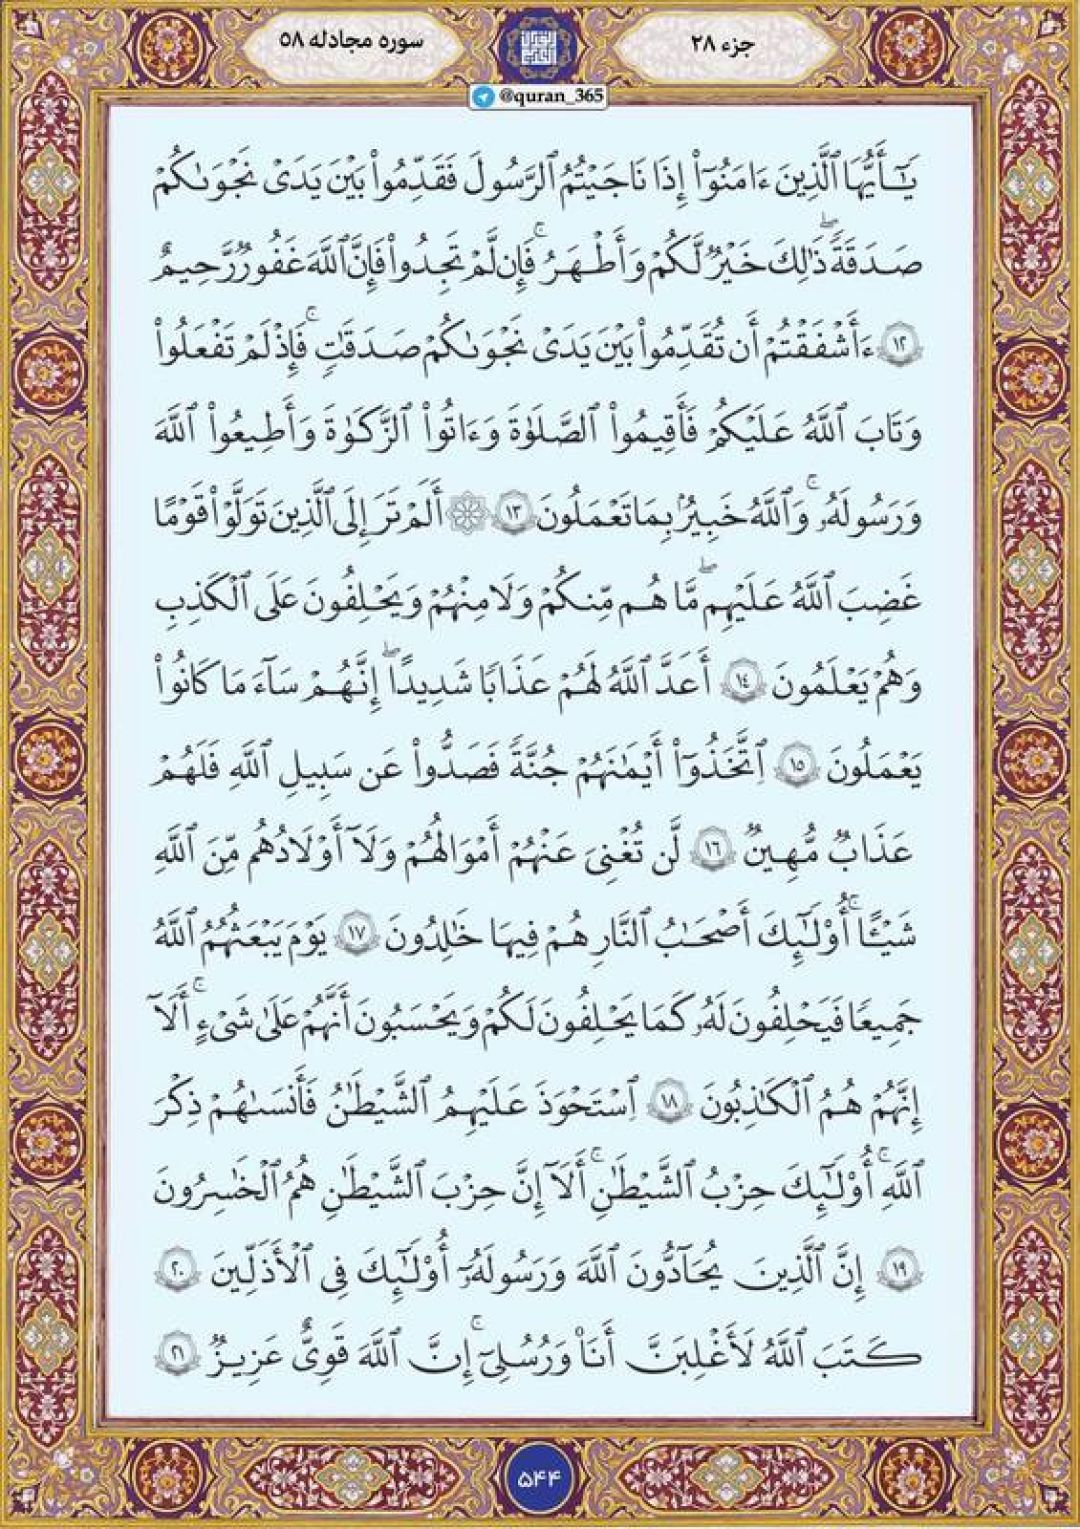 جزء ۲۸
سوره مجادله ۵۸
@quran_365
يَـٰٓأَيُّهَا ٱلَّذِينَ ءَامَنُوٓا۟ إِذَا نَـٰجَيْتُمُ ٱلرَّسُولَ فَقَدِّمُوا۟ بَيْنَ يَدَىْ نَجْوَىٰكُمْ
صَدَقَةً ۖ ذَٰلِكَ خَيْرٌ لَّكُمْ وَأَطْهَرُ ۚ فَإِن لَّمْ تَجِدُوا۟ فَإِنَّ ٱللَّهَ غَفُورٌ رَّحِيمٌ
١٢ ءَأَشْفَقْتُمْ أَن تُقَدِّمُوا۟ بَيْنَ يَدَىْ نَجْوَىٰكُمْ صَدَقَـٰتٍ ۚ فَإِذْ لَمْ تَفْعَلُوا۟
وَتَابَ ٱللَّهُ عَلَيْكُمْ فَأَقِيمُوا۟ ٱلصَّلَوٰةَ وَءَاتُوا۟ ٱلزَّكَوٰةَ وَأَطِيعُوا۟ ٱللَّهَ
وَرَسُولَهُۥ ۚ وَٱللَّهُ خَبِيرٌۢ بِمَا تَعْمَلُونَ ١٣ ۞ أَلَمْ تَرَ إِلَى ٱلَّذِينَ تَوَلَّوْا۟ قَوْمًا
غَضِبَ ٱللَّهُ عَلَيْهِم ۖ مَّا هُم مِّنكُمْ وَلَا مِنْهُمْ وَيَحْلِفُونَ عَلَى ٱلْكَذِبِ
وَهُمْ يَعْلَمُونَ ١٤ أَعَدَّ ٱللَّهُ لَهُمْ عَذَابًا شَدِيدًا ۖ إِنَّهُمْ سَآءَ مَا كَانُوا۟
يَعْمَلُونَ ١٥ ٱتَّخَذُوٓا۟ أَيْمَـٰنَهُمْ جُنَّةً فَصَدُّوا۟ عَن سَبِيلِ ٱللَّهِ فَلَهُمْ
عَذَابٌ مُّهِينٌ ١٦ لَّن تُغْنِىَ عَنْهُمْ أَمْوَٰلُهُمْ وَلَآ أَوْلَـٰدُهُم مِّنَ ٱللَّهِ
شَيْـًٔا ۚ أُو۟لَـٰٓئِكَ أَصْحَـٰبُ ٱلنَّارِ هُمْ فِيهَا خَـٰلِدُونَ ١٧ يَوْمَ يَبْعَثُهُمُ ٱللَّهُ
جَمِيعًا فَيَحْلِفُونَ لَهُۥ كَمَا يَحْلِفُونَ لَكُمْ وَيَحْسَبُونَ أَنَّهُمْ عَلَىٰ شَىْءٍ ۚ أَلَآ
إِنَّهُمْ هُمُ ٱلْكَـٰذِبُونَ ١٨ ٱسْتَحْوَذَ عَلَيْهِمُ ٱلشَّيْطَـٰنُ فَأَنسَىٰهُمْ ذِكْرَ
ٱللَّهِ ۚ أُو۟لَـٰٓئِكَ حِزْبُ ٱلشَّيْطَـٰنِ ۚ أَلَآ إِنَّ حِزْبَ ٱلشَّيْطَـٰنِ هُمُ ٱلْخَـٰسِرُونَ
١٩ إِنَّ ٱلَّذِينَ يُحَآدُّونَ ٱللَّهَ وَرَسُولَهُۥٓ أُو۟لَـٰٓئِكَ فِى ٱلْأَذَلِّينَ ٢٠
كَتَبَ ٱللَّهُ لَأَغْلِبَنَّ أَنَا۠ وَرُسُلِىٓ ۚ إِنَّ ٱللَّهَ قَوِىٌّ عَزِيزٌ ٢١
۵۴۴